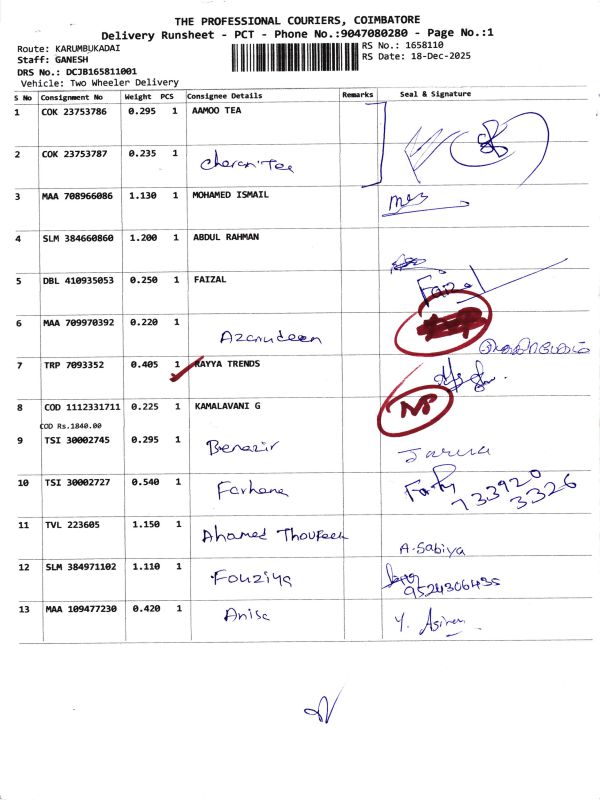 THE PROFESSIONAL COURIERS, COIMBATORE
Delivery Runsheet - PCT - Phone No.:9047080280 - Page No.:1
Route: KARUMBUKADAI
RS No.: 1658110
Staff: GANESH
RS Date: 18-Dec-2025
DRS No.: DCJB165811001
Vehicle: Two Wheeler Delivery
S No Consignment No Weight PCS Consignee Details Remarks Seal & Signature
1 COK 23753786 0.295 1 AAMOO TEA
2 COK 23753787 0.235 1 Charan Tea
3 MAA 708966086 1.130 1 MOHAMED ISMAIL
4 SLM 384660860 1.200 1 ABDUL RAHMAN
5 DBL 410935053 0.250 1 FAIZAL Faizal
6 MAA 709970392 0.220 1 Azarudeen
7 TRP 7093352 0.405 1 RAYYA TRENDS
8 COD 1112331711 0.225 1 KAMALAVANI G NP
COD Rs.1840.00
9 TSI 30002745 0.295 1 Benazir
10 TSI 30002727 0.540 1 Farhana 733920
3326
11 TVL 223605 1.150 1 Ahamed Thoufeek A-Sabiya
12 SLM 384971102 1.110 1 Fouziya 9524306435
13 MAA 109477230 0.420 1 Anisa Y. Asiran